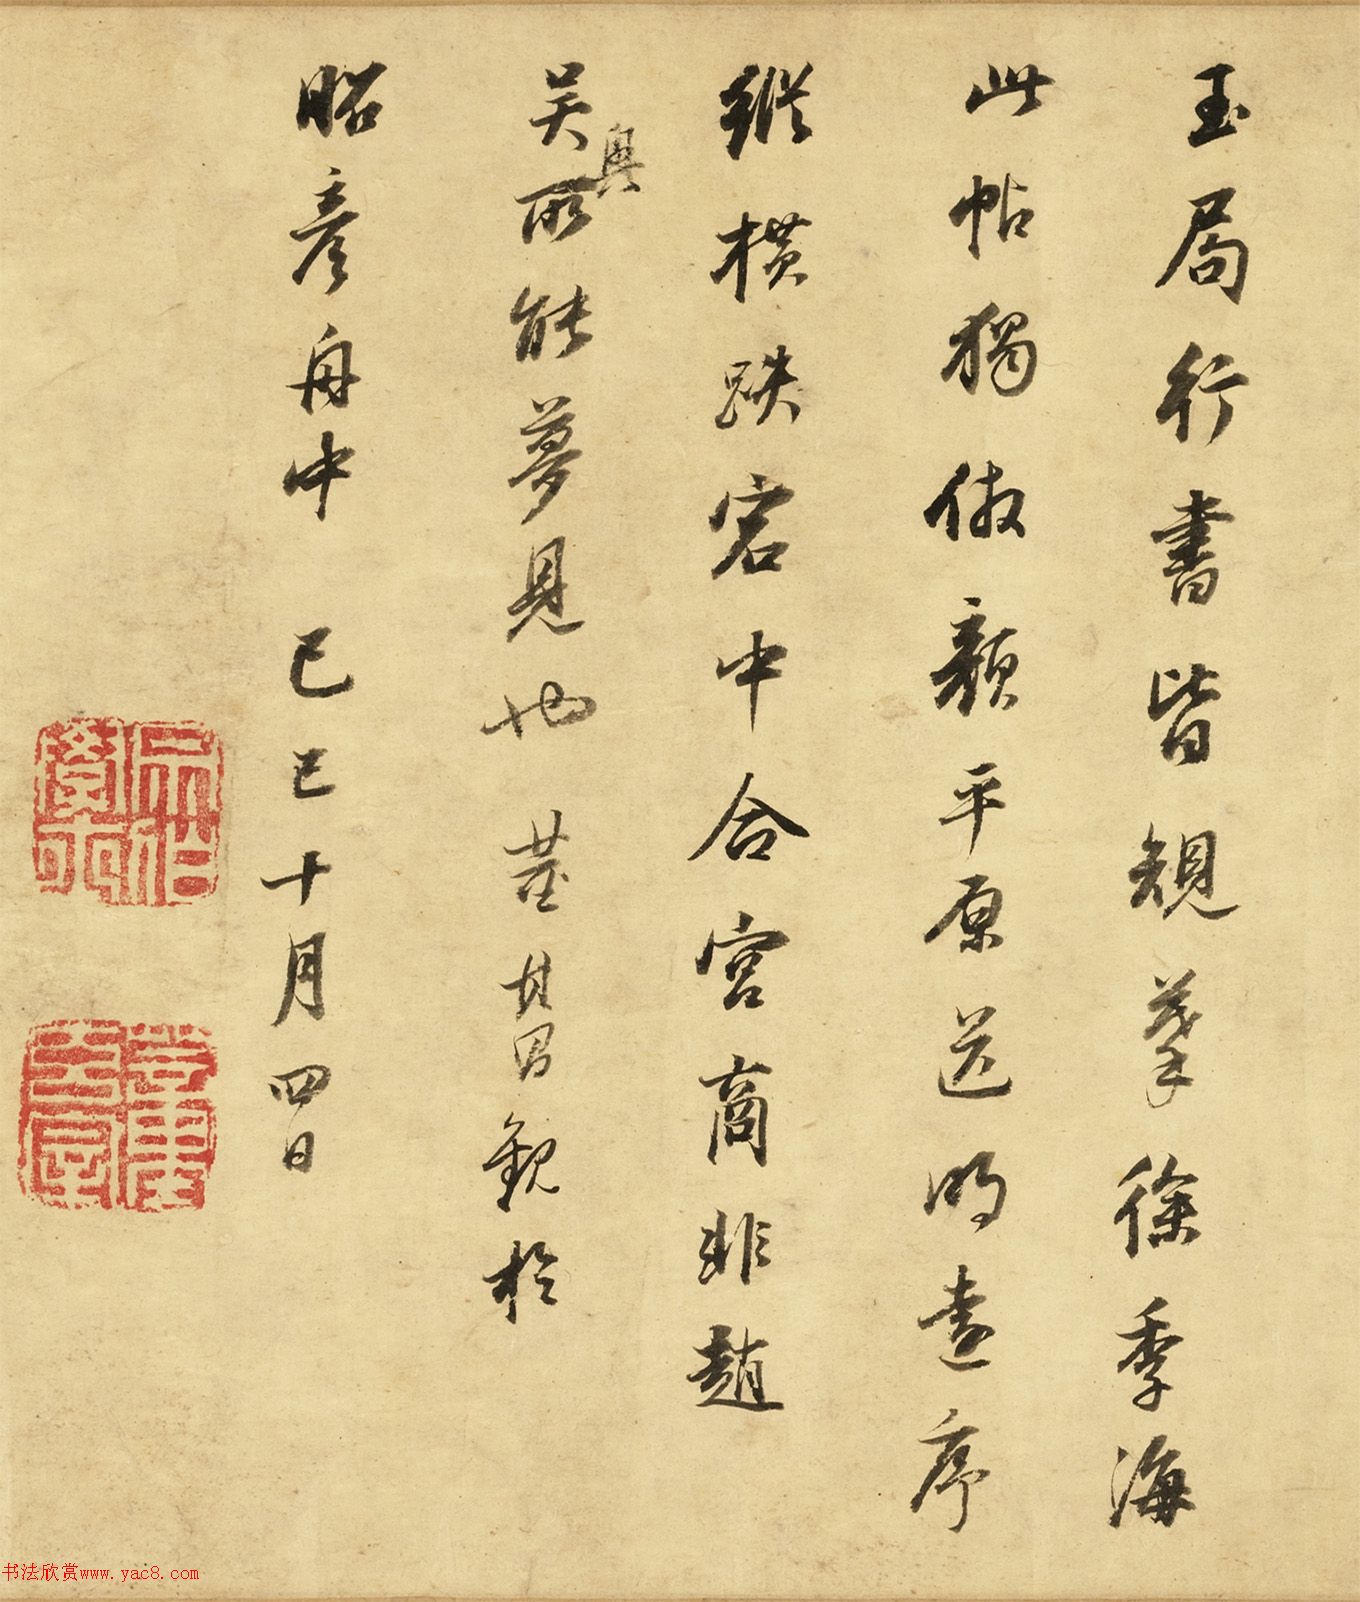 玉局行書皆規摹徐季海
此帖獨倣顏平原送明遠序
縱橫跌宕中合宮商非趙
吳興所能夢見也 董其昌觀於
昭彥舟中 己巳十月四日
书法欣赏www.yac8.com